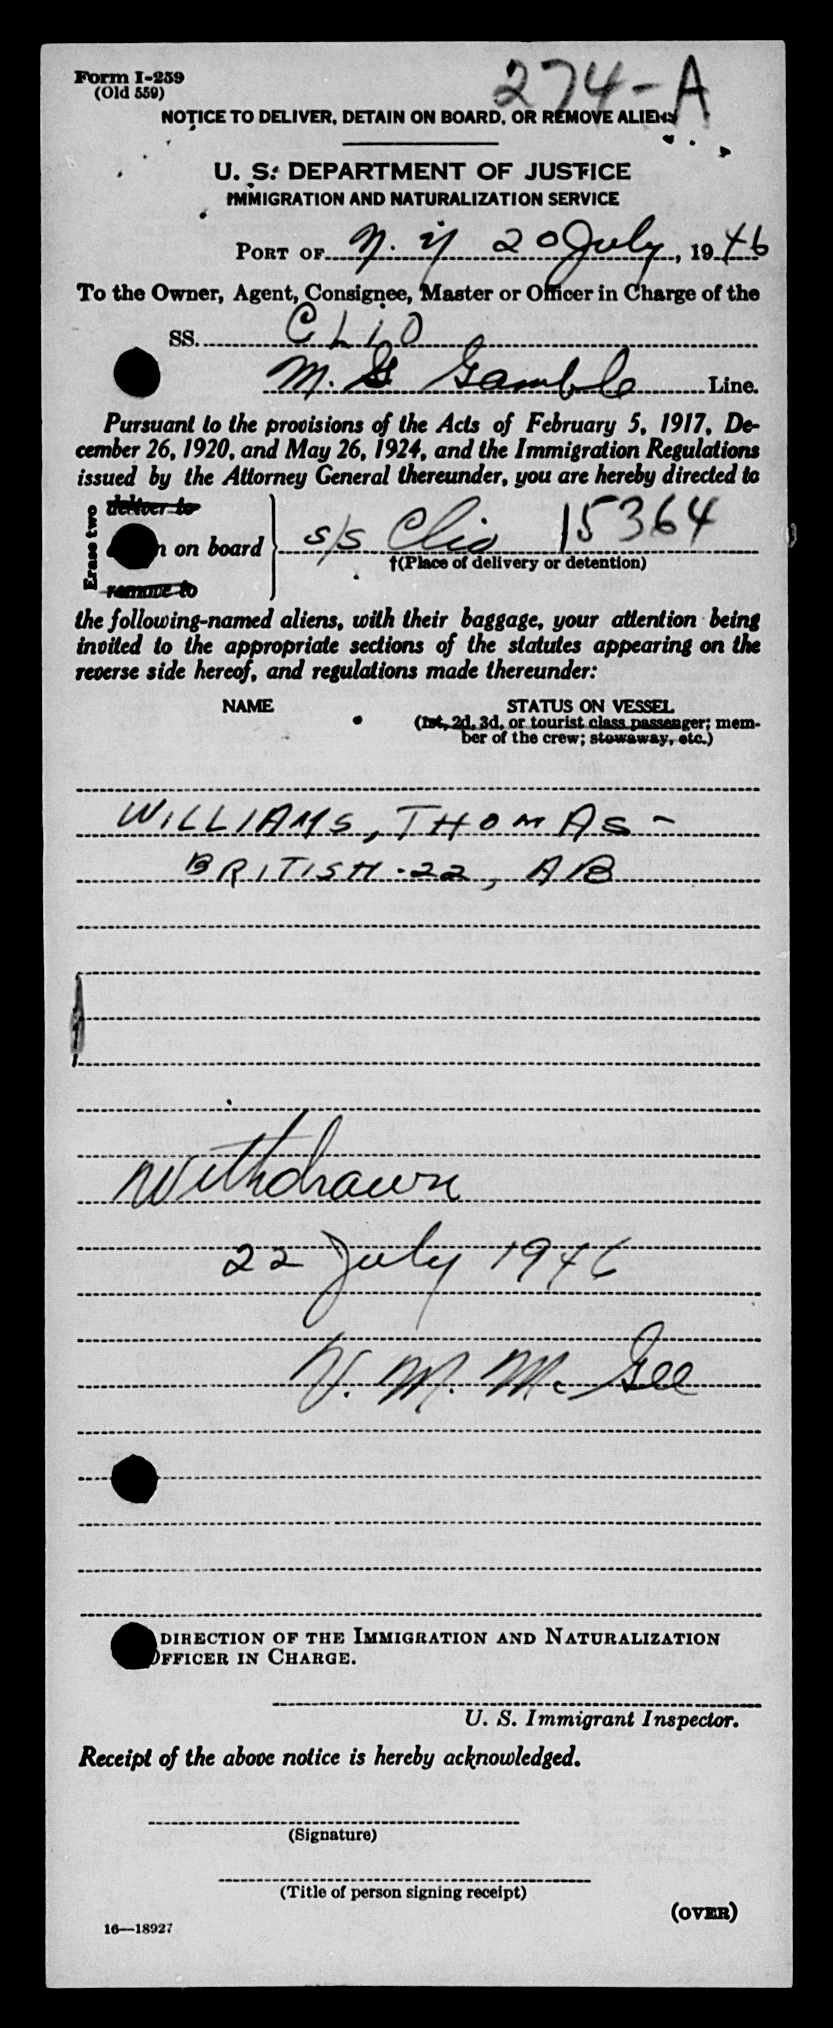 Form I-259
(Old 559)
274-A
NOTICE TO DELIVER, DETAIN ON BOARD, OR REMOVE ALIENS
U. S. DEPARTMENT OF JUSTICE
IMMIGRATION AND NATURALIZATION SERVICE
PORT OF N. Y 20 July, 1946
To the Owner, Agent, Consignee, Master or Officer in Charge of the
SS. CLIO
M. G Gamble Line.
Pursuant to the provisions of the Acts of February 5, 1917, De-
cember 26, 1920, and May 26, 1924, and the Immigration Regulations
issued by the Attorney General thereunder, you are hereby directed to
Erase two
deliver to
n on board s/s Clio 15364
remove to
†(Place of delivery or detention)
the following-named aliens, with their baggage, your attention being
invited to the appropriate sections of the statutes appearing on the
reverse side hereof, and regulations made thereunder:
NAME STATUS ON VESSEL
(1st, 2d, 3d, or tourist class passenger; mem-
ber of the crew; stowaway, etc.)
WILLIAMS, THOMAS -
BRITISH - 22, AB
Withdrawn
22 July 1946
V. M. McGee
DIRECTION OF THE IMMIGRATION AND NATURALIZATION
OFFICER IN CHARGE.
U. S. Immigrant Inspector.
Receipt of the above notice is hereby acknowledged.
(Signature)
(Title of person signing receipt)
(OVER)
16—18927